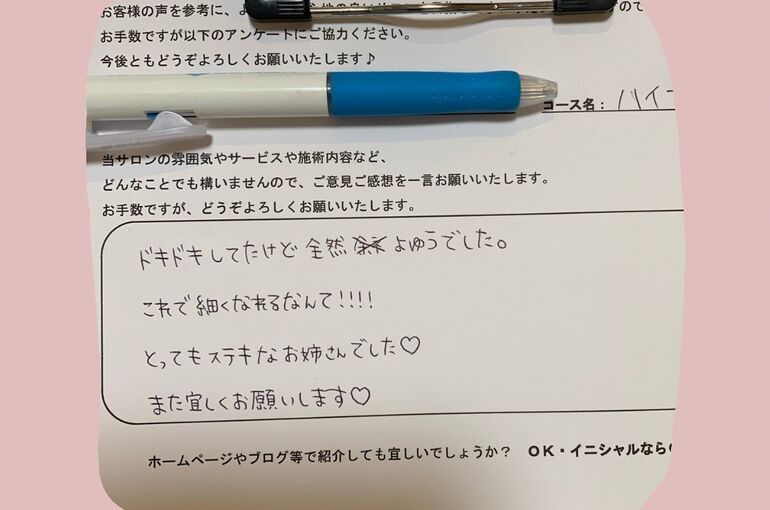 お客様の声を参考に、よ
お手数ですが以下のアンケートにご協力ください。
今後ともどうぞよろしくお願いいたします♪
コース名：ハイ
当サロンの雰囲気やサービスや施術内容など、
どんなことでも構いませんので、ご意見ご感想を一言お願いいたします。
お手数ですが、どうぞよろしくお願いします。
ドキドキしてたけど全然よゆうでした。
これで細くなれるなんて!!!!
とってもステキなお姉さんでした♡
また宜しくお願いします♡
ホームページやブログ等で紹介しても宜しいでしょうか？　ＯＫ・イニシャルなら